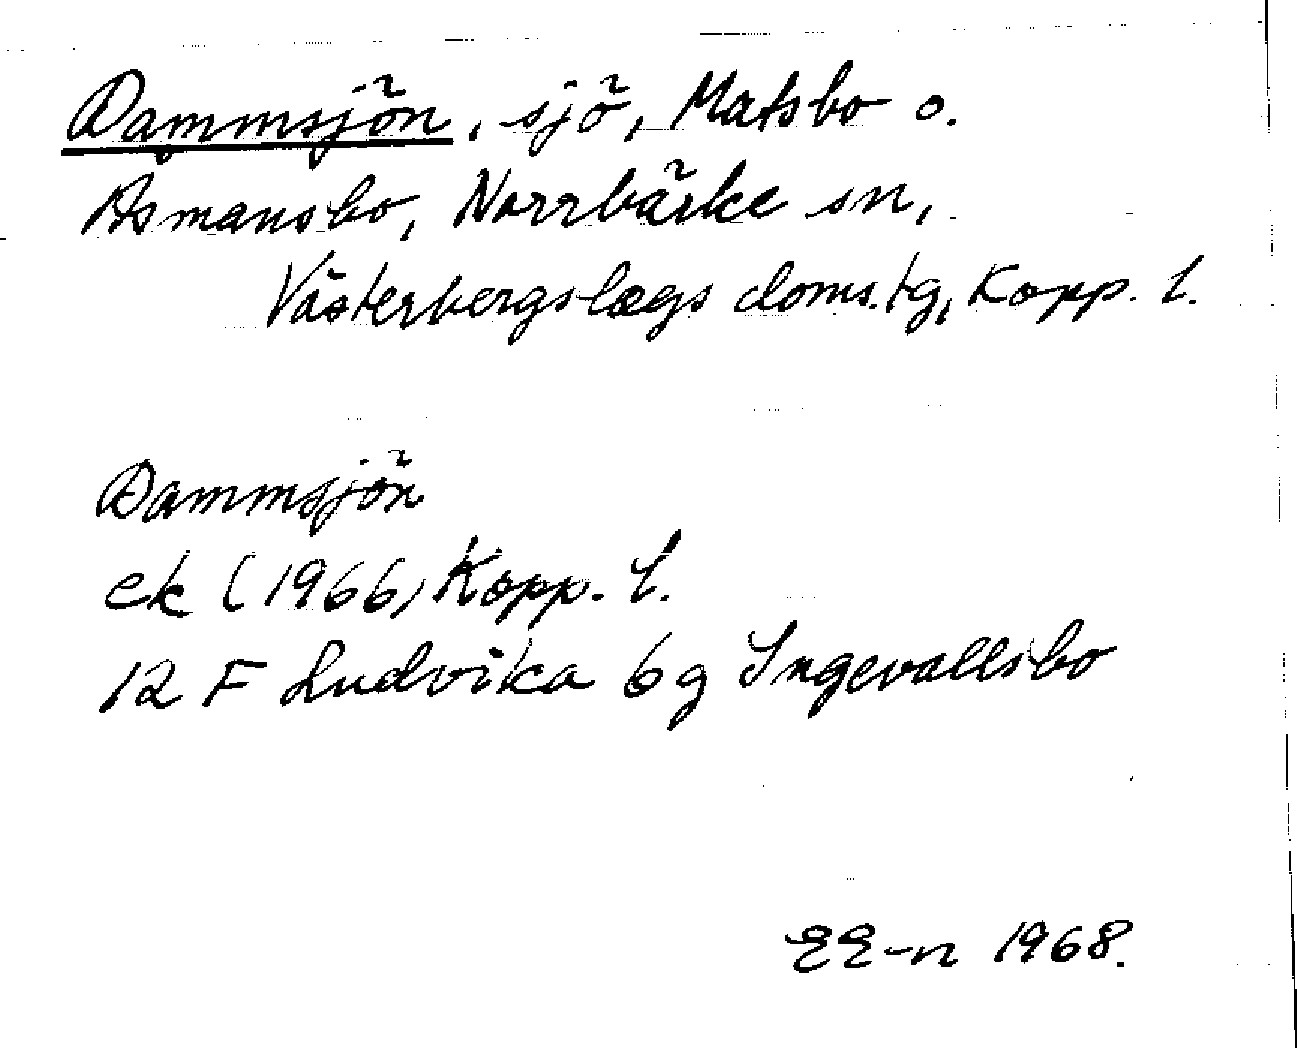 Dammsjön, sjö, Matsbo o.
Asmansbo, Norrbärke sn,
Västerbergslags doms.tg, Kopp. l.
Dammsjön
ek (1966) Kopp. l.
12 F Ludvika 6 g Ingevallsbo
EE-n 1968.